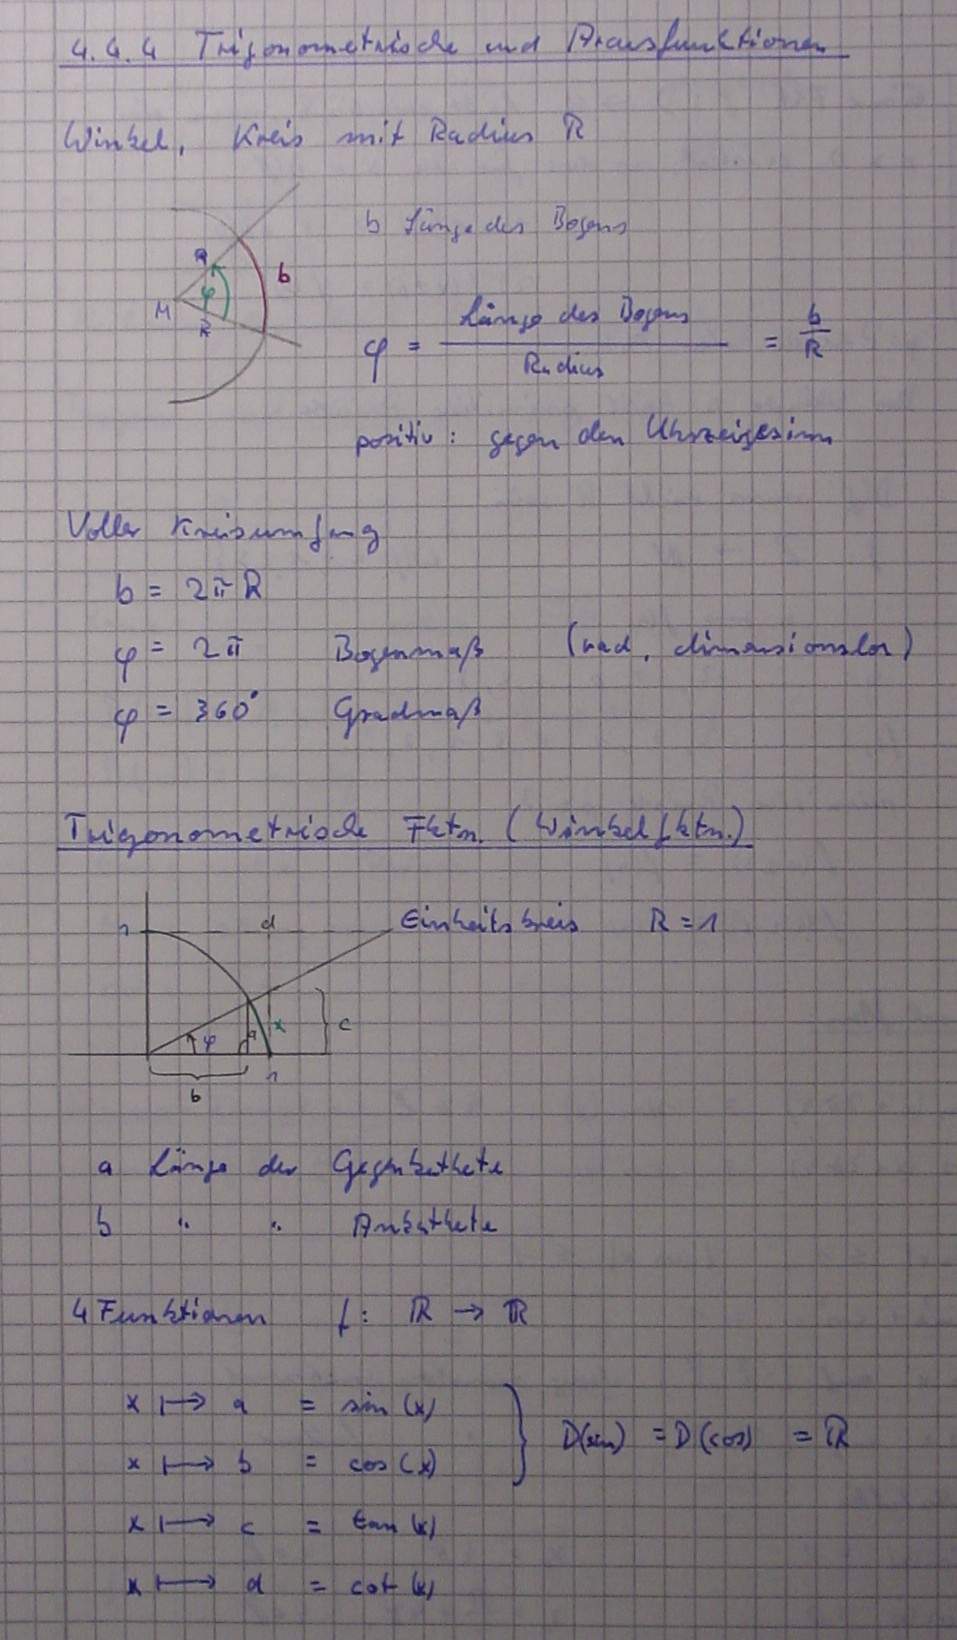 4.4.4 Trigonometrische und Arcusfunktionen
Winkel, Kreis mit Radius R
b Länge des Bogens
R
b
φ
M
R
φ = Länge des Bogens / Radius = b / R
positiv: gegen den Uhrzeigersinn
Voller Kreisumfang
b = 2πR
φ = 2π Bogenmaß (rad, dimensionslos)
φ = 360° Gradmaß
Trigonometrische Fktn. (Winkelfktn.)
1 d Einheitskreis R = 1
x c
φ a
b 1
a Länge der Gegenkathete
b " " Ankathete
4 Funktionen f: ℝ → ℝ
x ↦ a = sin(x)
x ↦ b = cos(x)
} D(sin) = D(cos) = ℝ
x ↦ c = tan(x)
x ↦ d = cot(x)